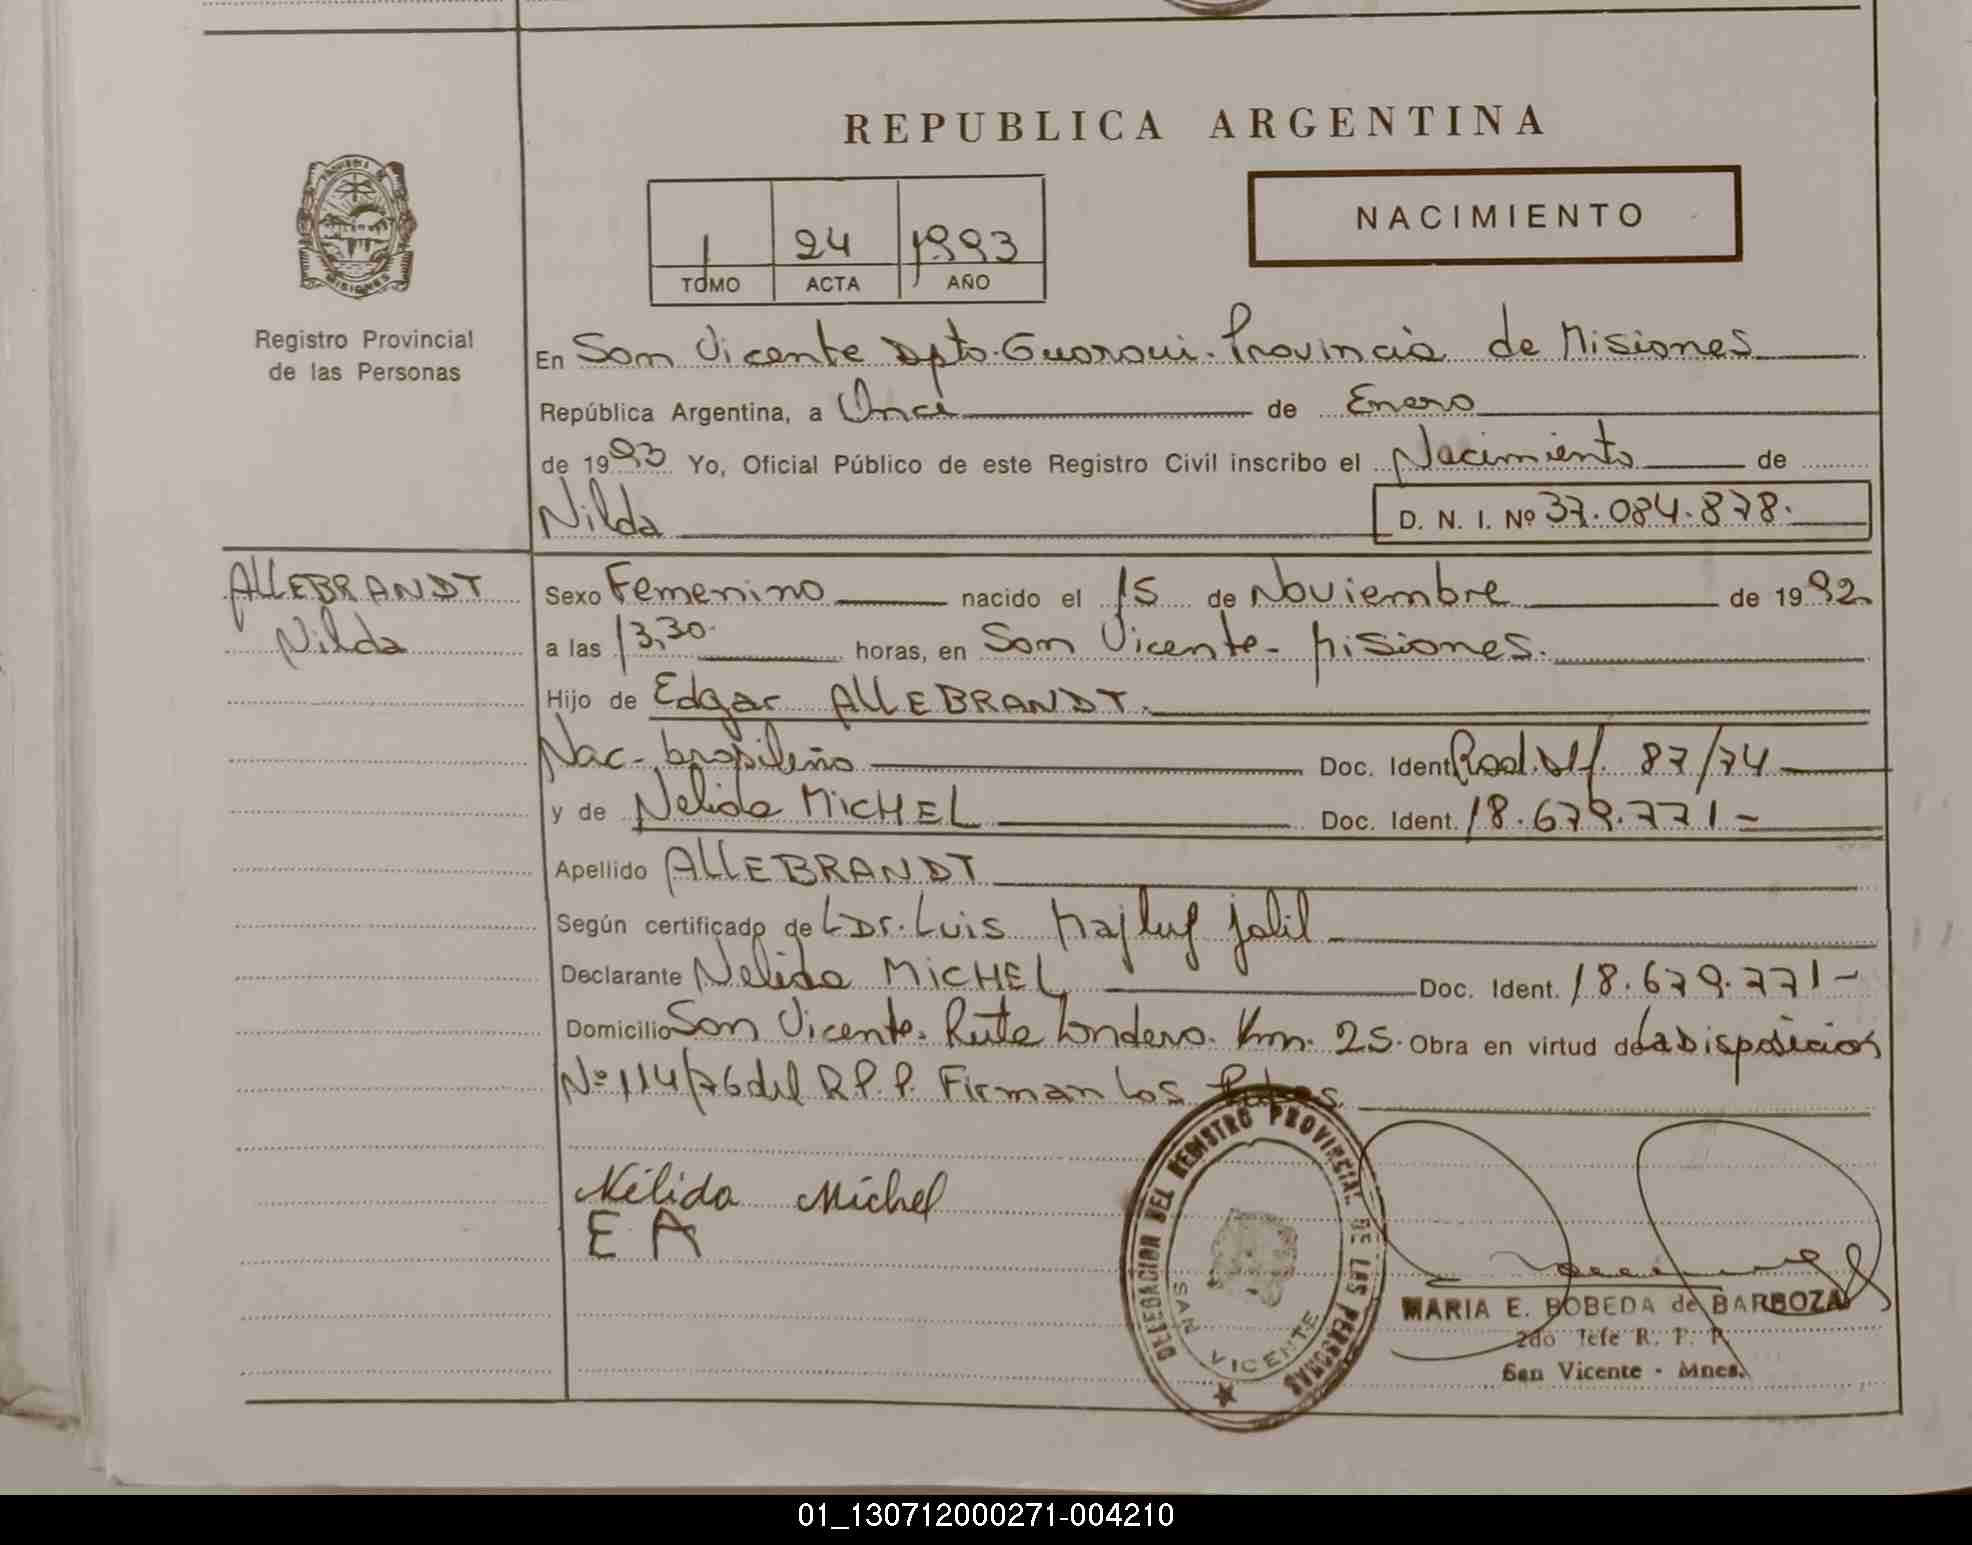 REPUBLICA ARGENTINA
NACIMIENTO
1 24 1993
TOMO ACTA AÑO
PROVINCIA DE MISIONES
Registro Provincial
de las Personas
En San Vicente Dpto. Guarani. Provincia de Misiones
República Argentina, a Once de Enero
de 1993 Yo, Oficial Público de este Registro Civil inscribo el Nacimiento de
Nilda D. N. I. Nº 37.084.878.
ALLEBRANDT
Nilda
Sexo Femenino nacido el 15 de Noviembre de 1992
a las 13,30 horas, en San Vicente - Misiones.
Hijo de Edgar ALLEBRANDT.
Nac. brasileño Doc. Ident. 87/74
y de Nelida MICHEL Doc. Ident. 18.679.771-
Apellido ALLEBRANDT
Según certificado de Dr. Luis Majluf Jalil
Declarante Nelida MICHEL Doc. Ident. 18.679.771-
Domicilio San Vicente. Ruta Km. 25. Obra en virtud de la Disposicion
Nº 114/76 del R.P.P. Firman los
Nélida Michel
E A
DELEGACION DEL REGISTRO PROVINCIAL DE LAS PERSONAS
SAN VICENTE
MARIA E. BOBEDA de BARBOZA
2do Jefe R. P. P.
San Vicente - Mnes.
01_130712000271-004210